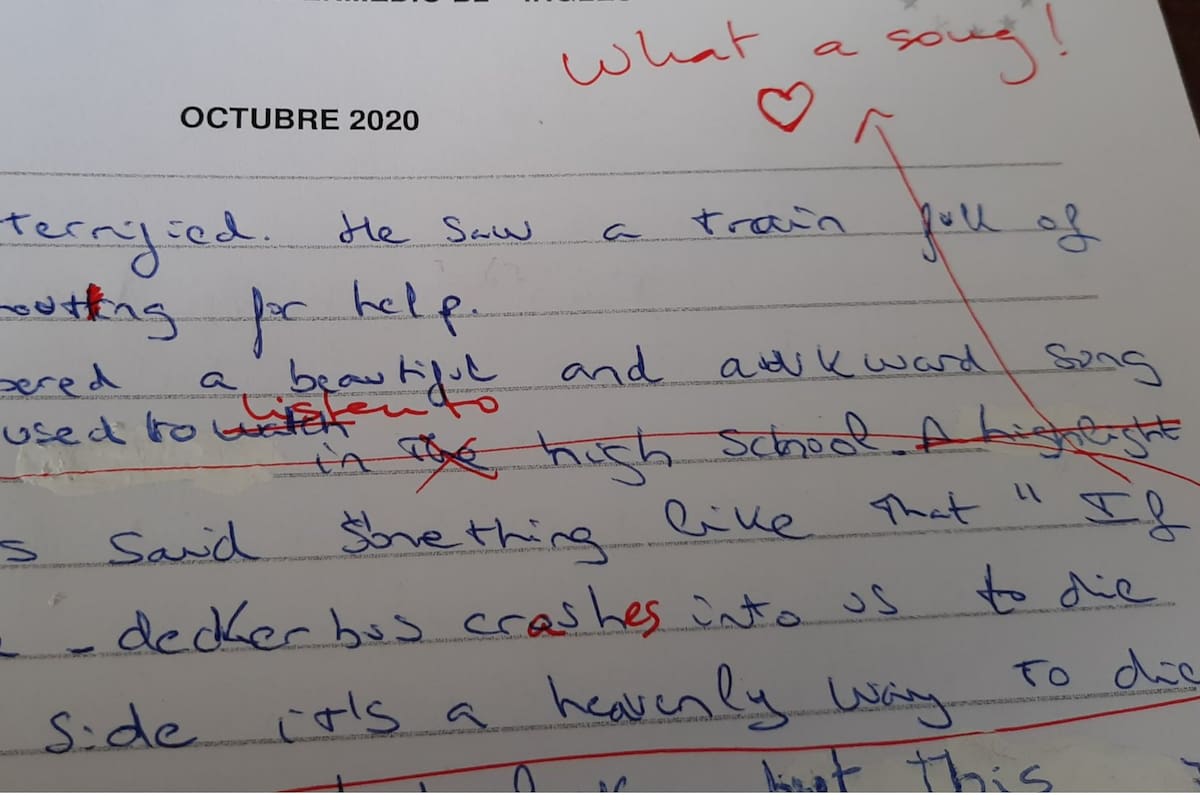 What a song!
OCTUBRE 2020
terrified. He saw a train full of
for help.
a beautiful and awkward song
listen to
used to watch
in the high school. A highlight
said something like that " If
- decker bus crashes into us to die
side it's a heavenly way to die
but this